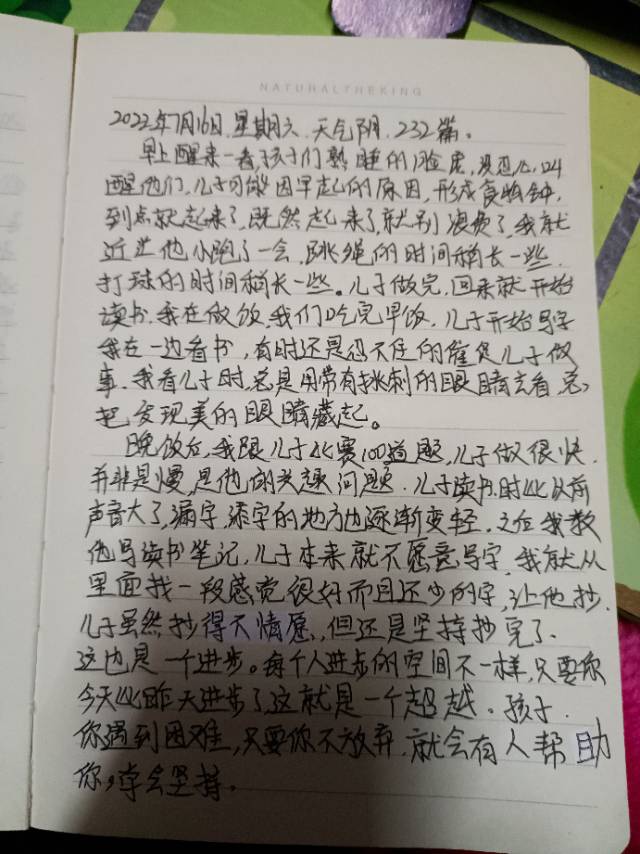 NATURALTHEKING
2022年7月16日.星期六.天气阴.232篇。
早上醒来一看孩子们熟睡的脸庞,没忍心叫
醒他们,儿子可能因早起的原因,形成食物钟,
到点就起来了,既然起来了,就别浪费了,我就
近让他小跑了一会.跳绳的时间稍长一些.
打球的时间稍长一些。儿子做完.回来就开始
读书.我在做饭,我们吃完早饭.儿子开始写字
我在一边看书,有时还是忍不住的催促儿子做
事.我看儿子时,总是用带有挑刺的眼睛去看,总
把发现美的眼睛藏起。
晚饭后,我跟儿子比赛100道题,儿子做很快.
并非是慢,是他的兴趣问题.儿子读书时比以前
声音大了,漏字,添字的地方也逐渐变轻.之后我教
他写读书笔记,儿子本来就不愿意写字.我就从
里面找一段感觉很好而且还少的字,让他抄.
儿子虽然抄得不情愿,但还是坚持抄完了.
这也是一个进步。每个人进步的空间不一样,只要你
今天比昨天进步了,这就是一个超越。孩子.
你遇到困难,只要你不放弃.就会有人帮助
你,学会坚持。